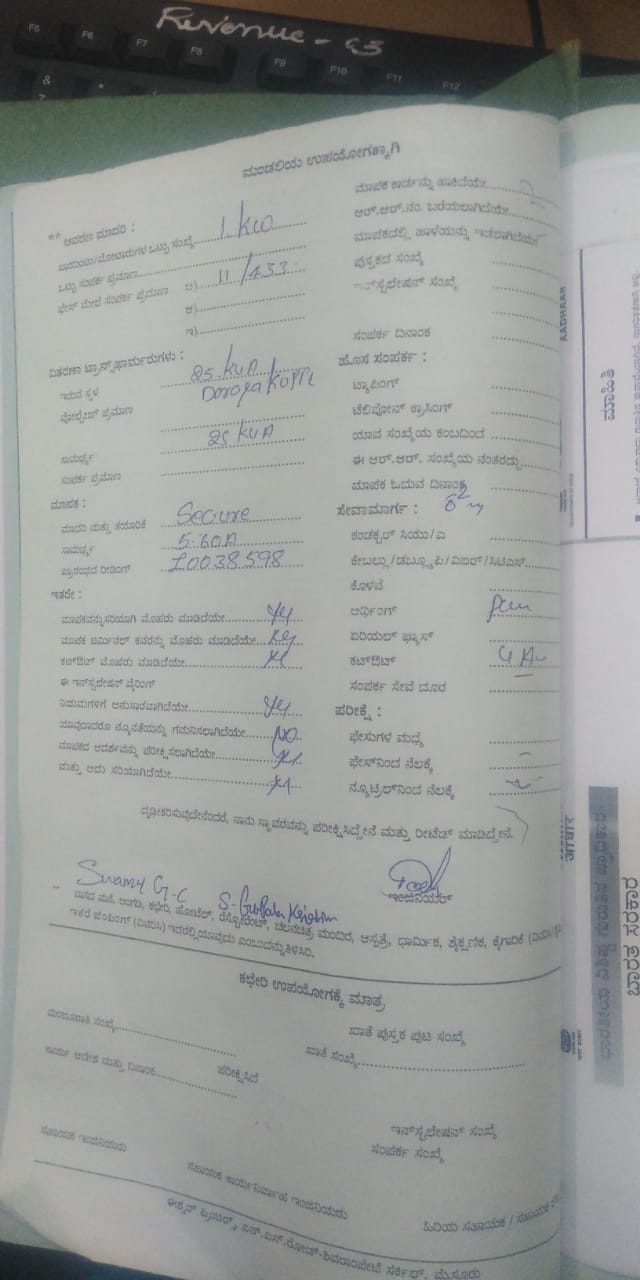 Revenue - 63
F5 F6 F7 F8 F9 F10 F11 F12
&
7
*
ಮಂಡಲಿಯ ಉಪಯೋಗಕ್ಕಾಗಿ
** ಆವರಣ ಮಾದರಿ :
ಪಾಯಿಂಟು/ಮೋಟಾರುಗಳ ಒಟ್ಟು ಸಂಖ್ಯೆ 1 KW
ಒಟ್ಟು ಸಂಪರ್ಕ ಪ್ರಮಾಣ
ಫೇಸ್ ಮೇಲೆ ಸಂಪರ್ಕ ಪ್ರಮಾಣ ಅ) 11/433
ಆ)
ಇ)
ವಿತರಣಾ ಟ್ರಾನ್ಸ್‌ಫಾರ್ಮರುಗಳು :
ಇರುವ ಸ್ಥಳ 25 KVA
ವೋಲ್ಟೇಜ್ ಪ್ರಮಾಣ
ಸಾಮರ್ಥ್ಯ 25 KVA
ಸಂಪರ್ಕ ಪ್ರಮಾಣ
ಮಾಪಕ :
ಮಾದರಿ ಮತ್ತು ತಯಾರಿಕೆ Secure
ಸಾಮರ್ಥ್ಯ 5-60A
ಪ್ರಾರಂಭದ ರೀಡಿಂಗ್ 10038598
ಇತರೇ :
ಮಾಪಕವನ್ನು ಸರಿಯಾಗಿ ಮೊಹರು ಮಾಡಿದೆಯೇ
ಮಾಪಕ ಟರ್ಮಿನಲ್ ಕವರನ್ನು ಮೊಹರು ಮಾಡಿದೆಯೇ
ಕಟ್‌ಔಟ್ ಮೊಹರು ಮಾಡಿದೆಯೇ
ಈ ಇನ್‌ಸ್ಟಲೇಷನ್ ವೈರಿಂಗ್
ನಿಯಮಗಳಿಗೆ ಅನುಸಾರವಾಗಿದೆಯೇ
ಯಾವುದಾದರೂ ನ್ಯೂನತೆಯನ್ನು ಗಮನಿಸಲಾಗಿದೆಯೇ NO
ಮಾಪಕದ ಆದರ್ಶವನ್ನು ಪರೀಕ್ಷಿಸಲಾಗಿದೆಯೇ
ಮತ್ತು ಅದು ಸರಿಯಾಗಿದೆಯೇ
ಮಾಪಕ ಕಾರ್ಡನ್ನು ಹಾಕಿದೆಯೇ
ಆರ್.ಆರ್.ನಂ. ಬರೆಯಲಾಗಿದೆಯೇ
ಮಾಪಕದಲ್ಲಿ ಹಾಳೆಯನ್ನು ಇಡಲಾಗಿದೆಯೇ
ಪುಸ್ತಕದ ಸಂಖ್ಯೆ
ಇನ್‌ಸ್ಟಲೇಷನ್ ಸಂಖ್ಯೆ
ಸಂಪರ್ಕ ದಿನಾಂಕ
ಹೊಸ ಸಂಪರ್ಕ :
ಟ್ಯಾಪಿಂಗ್
ಟೆಲಿಫೋನ್ ಕ್ರಾಸಿಂಗ್
ಯಾವ ಸಂಖ್ಯೆಯ ಕಂಬದಿಂದ
ಈ ಆರ್.ಆರ್. ಸಂಖ್ಯೆಯ ನಂತರದ್ದು
ಮಾಪಕ ಓದುವ ದಿನಾಂಕ
ಸೇವಾಮಾರ್ಗ :
ಕಂಡಕ್ಟರ್ ಸಿಯು/ಎ
ಕೇಬಲ್ಲು/ಡಬ್ಲ್ಯೂಪಿ/ವಿಐಆರ್/ಸಿಟಿಎಸ್
ಕೊಳವೆ
ಅರ್ಥಿಂಗ್
ಏರಿಯಲ್ ಫ್ಯೂಸ್
ಕಟ್‌ಔಟ್
ಸಂಪರ್ಕ ಸೇವೆ ದೂರ
ಪರೀಕ್ಷೆ :
ಫೇಸುಗಳ ಮಧ್ಯೆ
ಫೇಸ್‌ನಿಂದ ನೆಲಕ್ಕೆ
ನ್ಯೂಟ್ರಲ್‌ನಿಂದ ನೆಲಕ್ಕೆ
ದೃಢೀಕರಿಸುವುದೇನೆಂದರೆ, ನಾನು ಸ್ಥಾವರವನ್ನು ಪರೀಕ್ಷಿಸಿದ್ದೇನೆ ಮತ್ತು ರೀಟೆಡ್ ಮಾಡಿದ್ದೇನೆ.
Swamy G-C
ಇಂಜಿನಿಯರ್
** ವಾಸದ ಮನೆ, ಅಂಗಡಿ, ಕಛೇರಿ, ಹೋಟೆಲ್, ರೆಸ್ಟೋರೆಂಟ್, ಚಲನಚಿತ್ರ ಮಂದಿರ, ಆಸ್ಪತ್ರೆ, ಧಾರ್ಮಿಕ, ಶೈಕ್ಷಣಿಕ, ಕೈಗಾರಿಕೆ
ಇತರೆ ಪಂಪಿಂಗ್ (ವಿವರಿಸಿ) ಇದರಲ್ಲಿ ಯಾವುದು ಎಂಬುದನ್ನು ತಿಳಿಸಿರಿ.
ಕಛೇರಿ ಉಪಯೋಗಕ್ಕೆ ಮಾತ್ರ
ಮಂಜೂರಾತಿ ಸಂಖ್ಯೆ
ಖಾತೆ ಪುಸ್ತಕ ಪುಟ ಸಂಖ್ಯೆ
ಕಾರ್ಯ ಆದೇಶ ಮತ್ತು ದಿನಾಂಕ
ಪರೀಕ್ಷಿಸಿದೆ
ಖಾತೆ ಸಂಖ್ಯೆ
ಇನ್‌ಸ್ಟಲೇಷನ್ ಸಂಖ್ಯೆ
ಸಂಪರ್ಕ ಸಂಖ್ಯೆ
ಸಹಾಯಕ ಇಂಜಿನಿಯರು
ಸಹಾಯಕ ಕಾರ್ಯನಿರ್ವಾಹಕ ಇಂಜಿನಿಯರು
ಹಿರಿಯ ಸಹಾಯಕ / ಸಹಾಯಕ
AADHAAR
ಮಾಹಿತಿ
आधार
ಭಾರತೀಯ ವಿಶಿಷ್ಟ ಗುರುತಿನ ಪ್ರಾಧಿಕಾರ
ಭಾರತ ಸರ್ಕಾರ